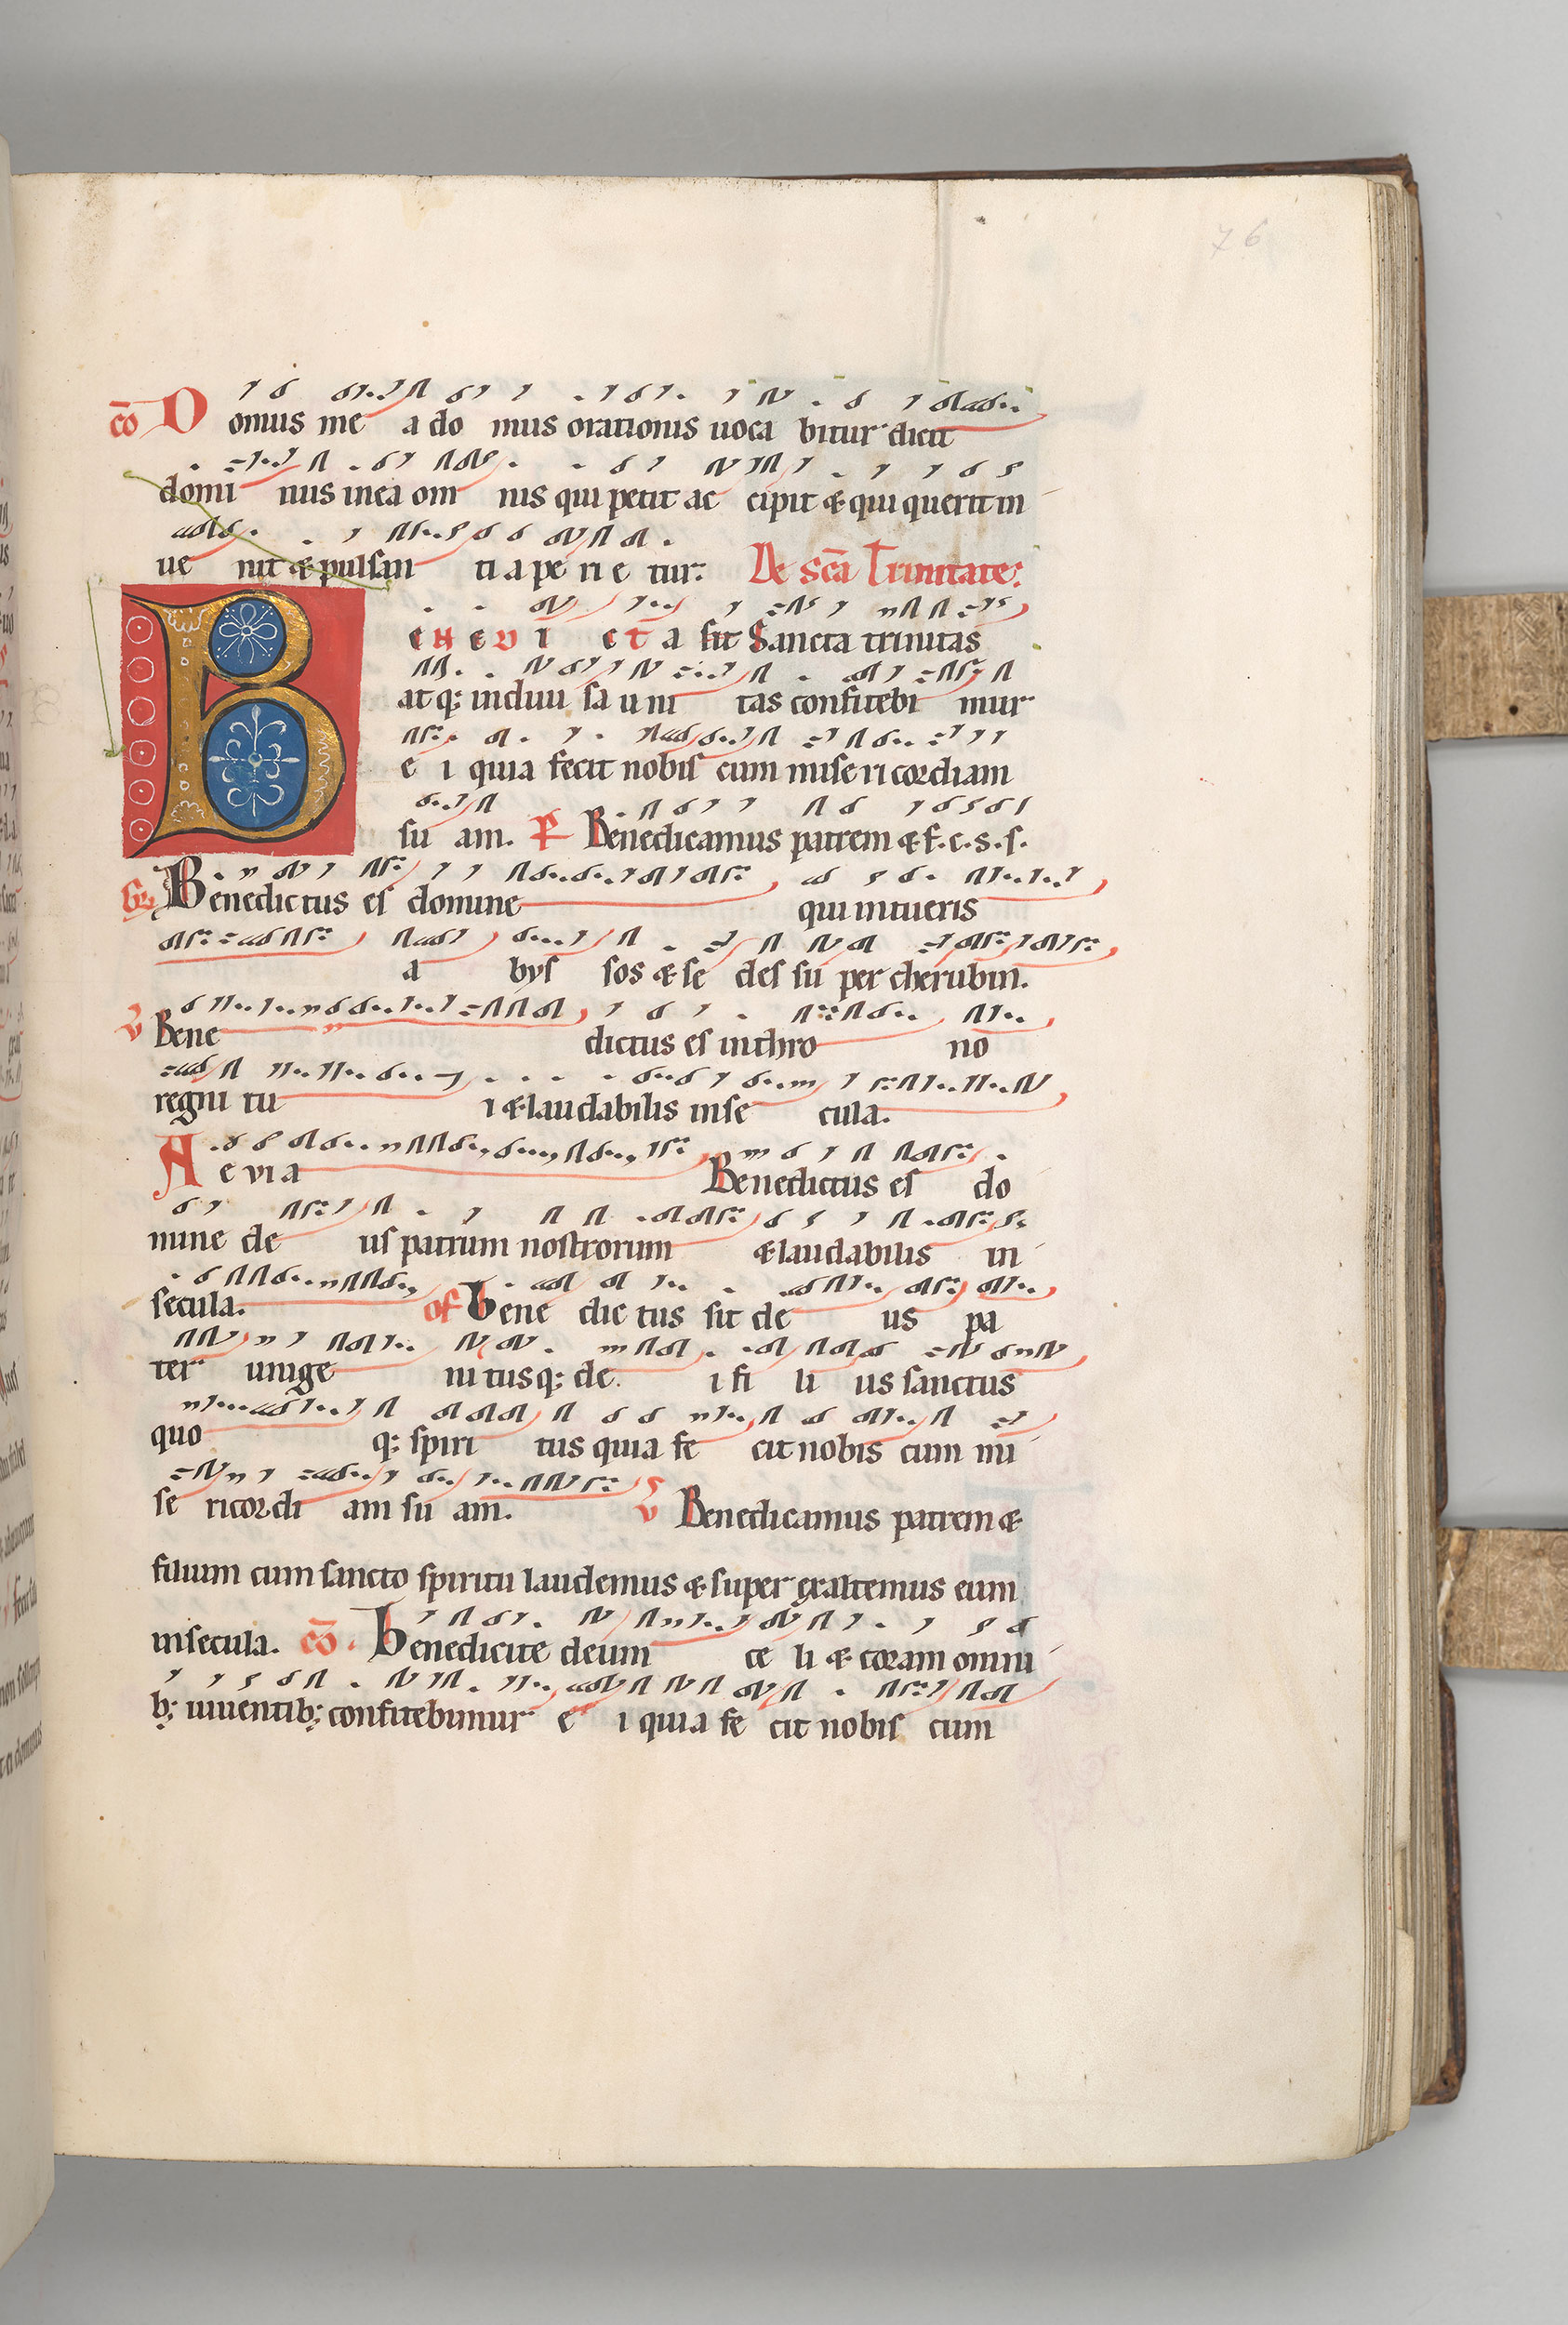 76
co Domus me a do mus orationis uoca bitur dicit
domi nus in ea om nis qui petit ac cipit & qui querit in
ue nit & pulsan ti a pe ri e tur. De sca Trinitate.
B ENEDI CTA sit Sancta trinitas
atq; indiui sa u ni tas confitebi mur
e i quia fecit nobis cum mise ri cordiam
su am. P Benedicamus patrem & f. c. s. s.
Gr Benedictus es domine qui intueris
a bys sos & se des su per cherubin.
V Bene dictus es in thro no
regni tu i & laudabilis in se cula.
A e via Benedictus es do
mine de us patrum nostrorum & laudabilis in
secula. of bene dic tus sit de us pa
ter unige ni tusq; de i fi li us sanctus
quo q; spiri tus quia fe cit nobis cum mi
se ricordi am su am. V Benedicamus patrem &
filium cum sancto spiritu laudemus & super exaltemus eum
in secula. co. benedicite deum ce li & coram omni
b; uiuentib; confitebimur e i quia fe cit nobis cum